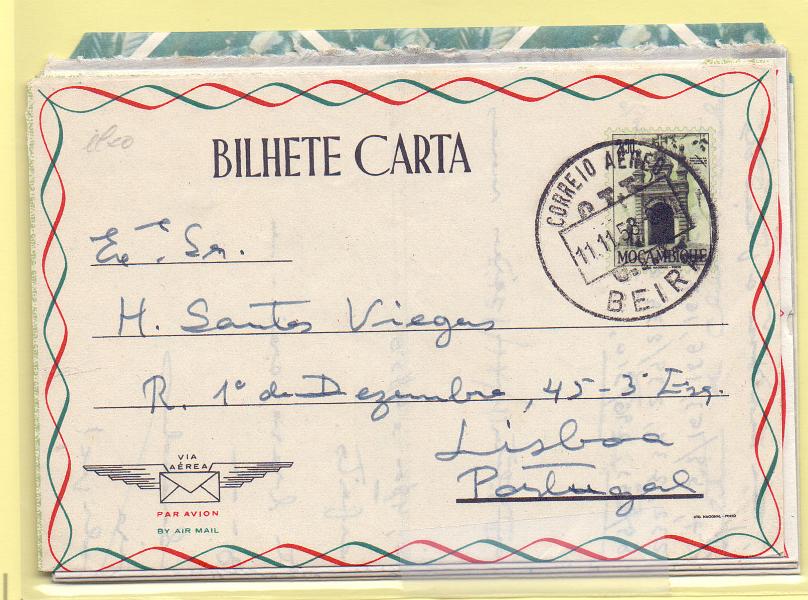 BILHETE CARTA
CORREIO AÉREO
C.T.T.
11.11.58
BEIRA
MOÇAMBIQUE
Ex.mo Sr.
H. Santos Viegas
R. 1º de Dezembro, 45-3º Esq.
Lisboa
Portugal
VIA
AÉREA
PAR AVION
BY AIR MAIL